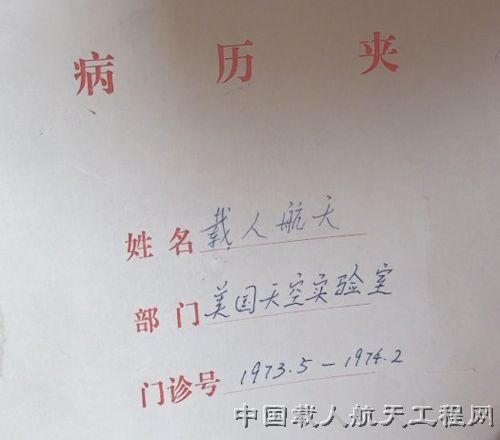 病历夹
姓名 载人航天
部门 美国天空实验室
门诊号 1973.5-1974.2
中国载人航天工程网